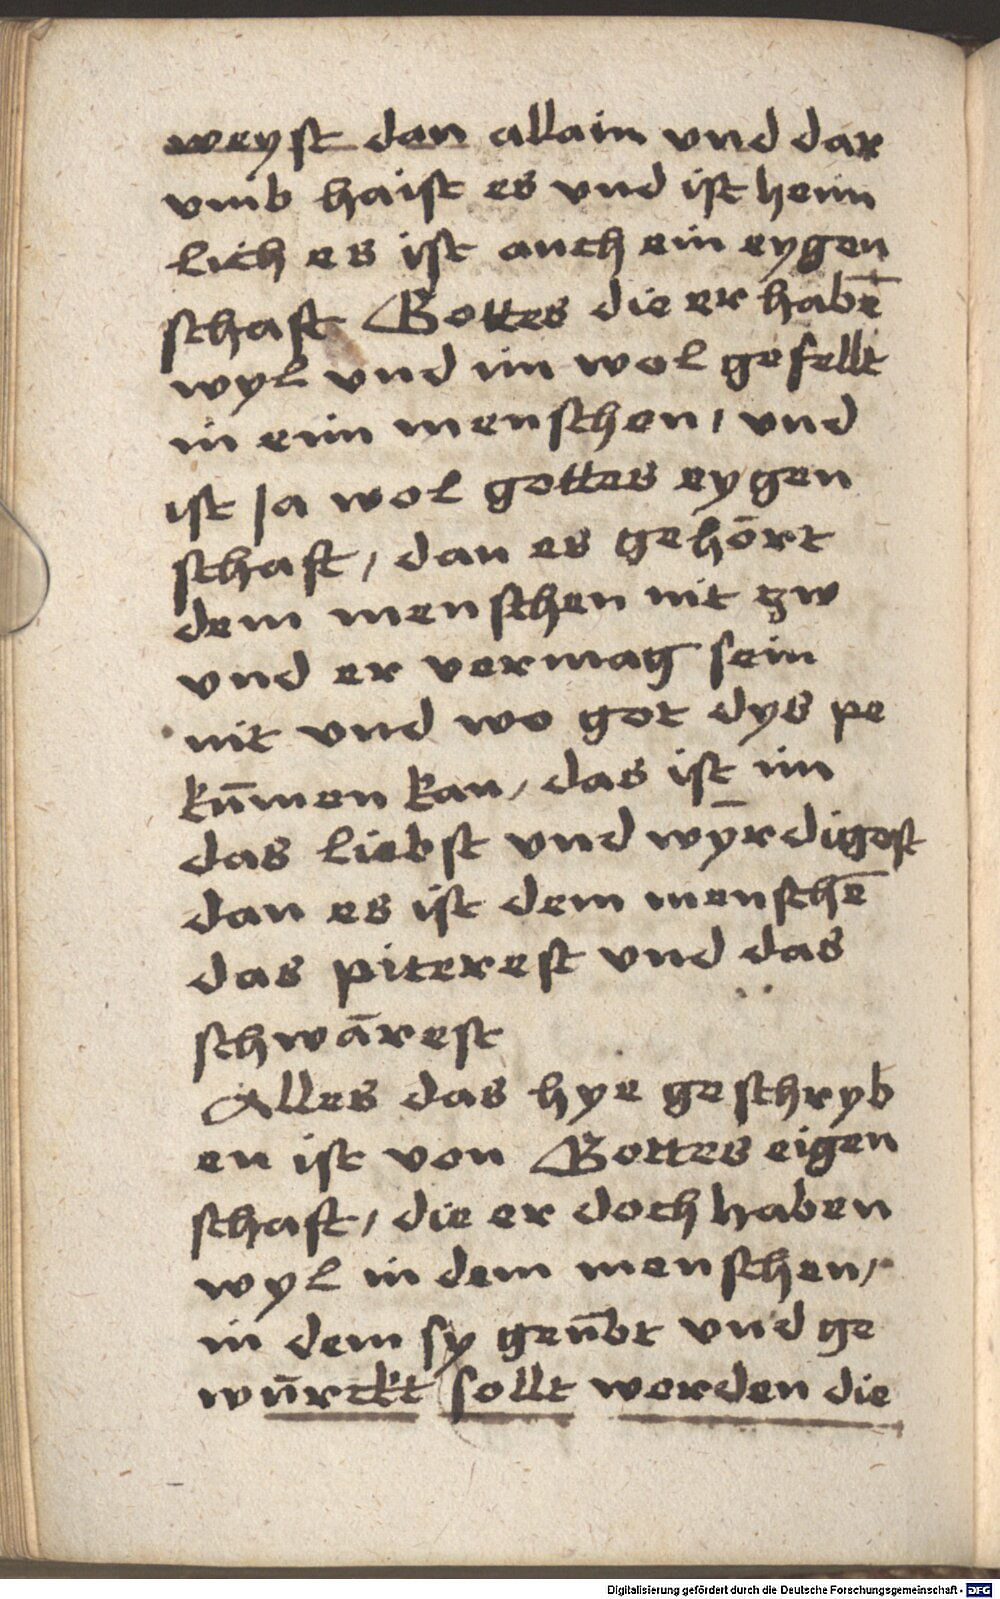 weyst dan allain vnd dar
vmb haist es vnd ist heim
lich es ist auch ein eygen
schaft Gottes die er habē
wyl vnd im wol gefellt
in eim menschen, vnd
ist ja wol gottes eygen
schaft, dan es gehōrt
dem menschen nit zw
vnd er vermag sein
nit vnd wo got dys pe
kūmen kan, das ist im
das liebst vnd wȳrdigest
dan es ist dem menschē
das piterest vnd das
schwārest
Alles das hye geschryb
en ist von Gottes eigen
schaft, die er doch haben
wyl in dem menschen,
in dem sy geūbt vnd ge
wūrckt sollt werden die
Digitalisierung gefördert durch die Deutsche Forschungsgemeinschaft - DFG